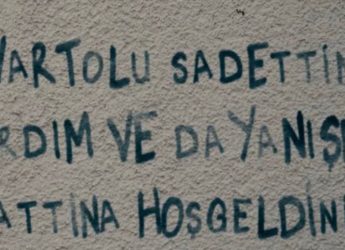 VARTOLU SADETTİN
RDIM VE DAYANIŞ
ATTINA HOŞGELDİN